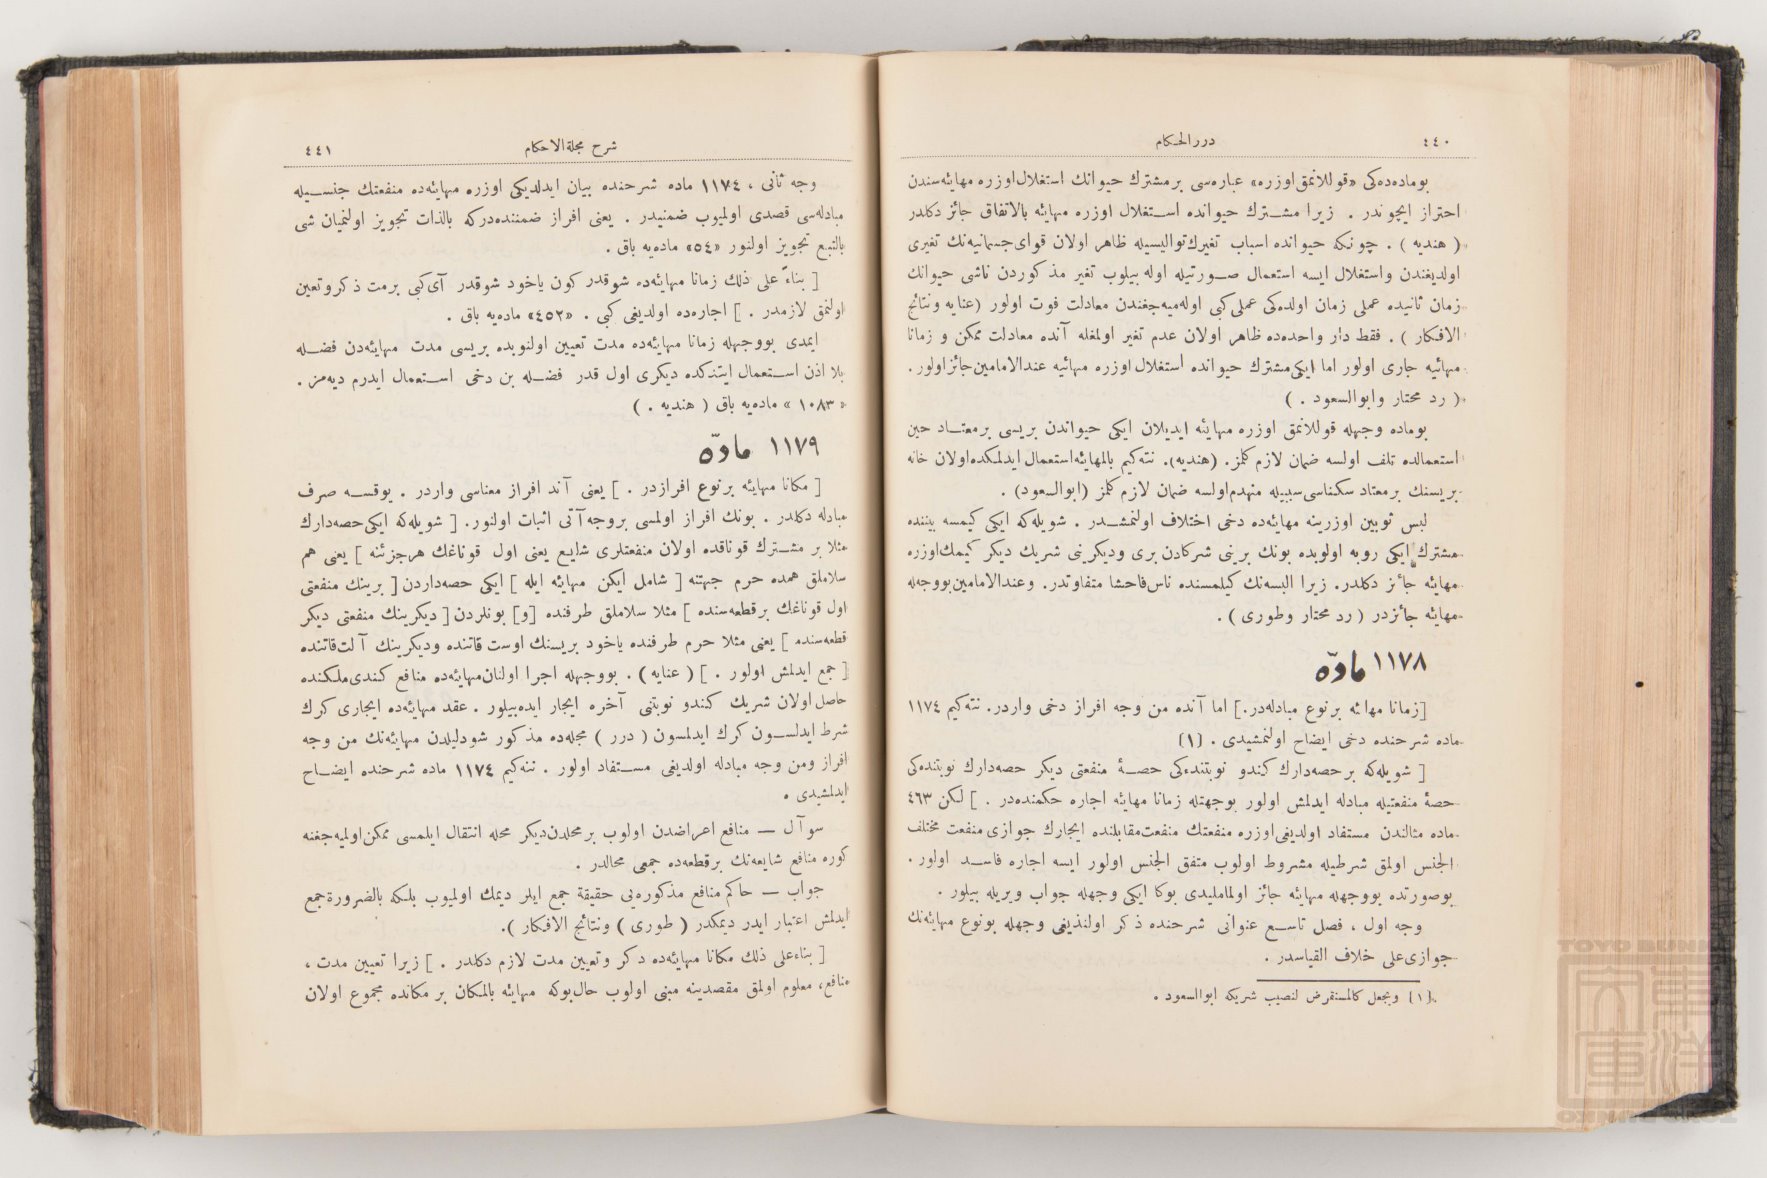 ٤٤٠
دررالحكام
بوماده‌ده‌كی «قوللانمق اوزره» عباره‌سی بر مشترك حیوانك استغلال اوزره مهایئه‌سندن
احتراز ایچوندر . زیرا مشترك حیوانده استغلال اوزره مهایئه بالاتفاق جائز دكلدر
( هندیه ) . چونكه حیوانده اسباب تغیرك توالیسیله ظاهر اولان قوای جسمانیه‌نك تغیری
اولدیغندن واستغلال ایسه استعمال صورتیله اوله بیلوب تغیر مذكوردن ناشی حیوانك
زمان ثانیده عملی زمان اولده‌كی عملی كبی اوله‌میه‌جغندن معادلت فوت اولور (عنایه ونتائج
الافكار ) . فقط دار واحده‌ده ظاهر اولان عدم تغیر اولمغله آنده معادلت ممكن و زمانا
مهائیه جاری اولور اما ایكی مشترك حیوانده استغلال اوزره مهائیه عندالامامین جائز اولور .
( رد محتار وابوالسعود . )
بوماده وجهله قوللانمق اوزره مهایئه ایدیلان ایكی حیواندن بریسی بر معتاد حین
استعمالده تلف اولسه ضمان لازم كلمز. (هندیه). نته‌كیم بالمهایئه استعمال ایدلمكده اولان خانه
بریسنك بر معتاد سكناسی سببیله منهدم اولسه ضمان لازم كلمز (ابوالسعود) .
لبس ثوبین اوزرینه مهایئه‌ده دخی اختلاف اولنمشدر . شویله‌كه ایكی كیمسه بیننده
مشترك ایكی روبه اولوبده بونك برینی شركادن بری ودیكرینی شریك دیكر كیمك اوزره
مهایئه جائز دكلدر. زیرا البسه‌نك كیلمسنده ناس فاحشا متفاوتدر. وعندالامامین بووجه‌له
مهایئه جائزدر ( رد محتار وطوری ) .
١١٧٨ مادّه
[زمانا مهائه برنوع مبادله‌در.] اما آنده من وجه افراز دخی واردر. نته‌كیم ١١٧٤
ماده شرحنده دخی ایضاح اولنمشیدی . (١)
[ شویله‌كه بر حصه‌دارك كندو نوبتنده‌كی حصهٔ منفعتی دیكر حصه‌دارك نوبتنده‌كی
حصهٔ منفعتیله مبادله ایدلمش اولور بوجهتله زمانا مهایئه اجاره حكمنده‌در . ] لكن ٤٦٣
ماده مثالندن مستفاد اولدیغی اوزره منفعتك منفعت مقابلنده ایجارك جوازی منفعت مختلف
الجنس اولمق شرطیله مشروط اولوب متفق الجنس اولور ایسه اجاره فاسد اولور .
بوصورتده بووجهله مهایئه جائز اولماملیدی بوكا ایكی وجهله جواب ویریله بیلور .
وجه اول ، فصل تاسع عنوانی شرحنده ذكر اولندیغی وجهله بونوع مهایئه‌نك
جوازی علی خلاف القیاسدر .
(١) ویجعل كالمستقرض لنصیب شریكه ابوالسعود .
شرح مجلةالاحكام
٤٤١
وجه ثانی ، ١١٧٤ ماده شرحنده بیان ایدلدیكی اوزره مهایئه‌ده منفعتك جنسیله
مبادله‌سی قصدی اولمیوب ضمنیدر . یعنی افراز ضمننده‌دركه بالذات تجویز اولنمیان شی
بالتبع تجویز اولنور «٥٤» ماده‌یه باق .
[ بناءً علی ذلك زمانا مهایئه‌ده شوقدر كون یاخود شوقدر آی كبی بر مت ذكر وتعین
اولنمق لازمدر . ] اجاره‌ده اولدیغی كبی . «٤٥٢» ماده‌یه باق .
ایمدی بووجهله زمانا مهایئه‌ده مدت تعیین اولنوبده بریسی مدت مهایئه‌دن فضله
بلا اذن استعمال ایتدكده دیكری اول قدر فضله بن دخی استعمال ایدرم دیه‌مز .
« ١٠٨٣ » ماده‌یه باق ( هندیه . )
١١٧٩ مادّه
[ مكانا مهایئه برنوع افرازدر . ] یعنی آند افراز معناسی واردر . یوقسه صرف
مبادله دكلدر . بونك افراز اولمسی بروجه آتی اثبات اولنور. [ شویله‌كه ایكی حصه‌دارك
مثلا بر مشترك قوناقده اولان منفعتلری شایع یعنی اول قوناغك هرجزئنه ] یعنی هم
سلاملق همده حرم جهتنه [ شامل ایكن مهایئه ایله ] ایكی حصه‌داردن [ برینك منفعتی
اول قوناغك بر قطعه‌سنده ] مثلا سلاملق طرفنده [و] بونلردن [ دیكرینك منفعتی دیكر
قطعه‌سنده ] یعنی مثلا حرم طرفنده یاخود بریسنك اوست قاتنده ودیكرینك آلت قاتنده
[ جمع ایدلمش اولور . ] ( عنایه ) . بووجهله اجرا اولنان مهایئه‌ده منافع كندی ملكنده
حاصل اولان شریك كندو نوبتنی آخره ایجار ایده‌بیلور . عقد مهایئه‌ده ایجاری كرك
شرط ایدلسون كرك ایدلمسون ( درر ) مجله‌ده مذكور شودلیلدن مهایئه‌نك من وجه
افراز ومن وجه مبادله اولدیغی مستفاد اولور . نته‌كیم ١١٧٤ ماده شرحنده ایضاح
ایدلمشیدی .
سوآل — منافع اعراضدن اولوب بر محلدن دیكر محله انتقال ایلمسی ممكن اولمیه‌جغنه
كوره منافع شایعه‌نك بر قطعه‌ده جمعی محالدر .
جواب — حاكم منافع مذكوره‌یی حقیقة جمع ایلر دیمك اولمیوب بلكه بالضرورة جمع
ایدلمش اعتبار ایدر دیمكدر ( طوری ) ونتائج الافكار ).
[ بناءعلی ذلك مكانا مهایئه‌ده ذكر وتعیین مدت لازم دكلدر . ] زیرا تعیین مدت ،
منافع، معلوم اولمق مقصدینه مبنی اولوب حال بوكه مهایئه بالمكان بر مكانده مجموع اولان
TOYO BUNKO
東洋文庫